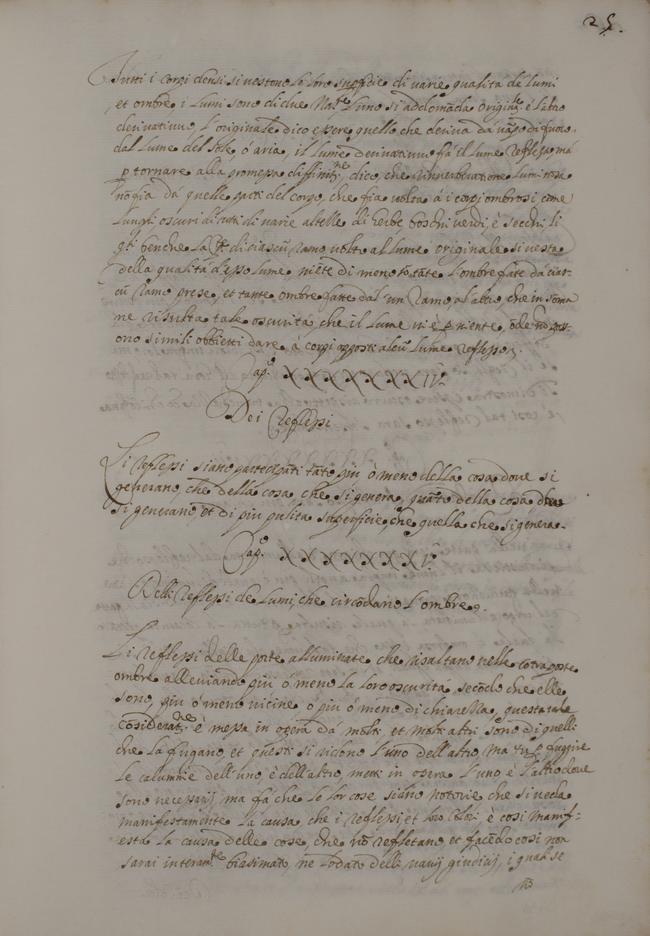 25.
Tutti i corpi densi si vestono le loro superficie di varie qualita de lumi
et ombre, i lumi sono di due Nate. l'uno si addomada origine. è l'altro
derivativuo, l'originale dico essere quello che deriva da
dal lume del sole, ó aria, il lume derivativuo fia il lume reflesso, má
p tornare alla promessa diffinite., dico, che luminosa
nó fia dá quelle parti del corpo, che fia volta á i corpi ombrosi come
luoghi oscuri di di varie altezze di herbe boschi verdi, è secchi, li
qti benche la pte. di ciascú ramo volto al lume originale si vesta
della qualita d'esso lume, niéte di meno só táte l'ombre fatte dá ciar-
cú ramo prese, et tante ombre fatte dal'un Ramo al'altro, che in soma
ne risulta tale oscuritá, che il lume vi è p niente, óde nó pos-
ono simili obbietti dare, á corpi apposti alcú lume reflesso.
Capo. XXXXXXXIVo.
Dei reflessi.
Li reflessi siano partecipati táto piu ó meno della cosa dove si
generano, che della cosa, che si genera, quáto della cosa dove
si generano, et di piu pulita superficie, che quella che si genera.
Capo. XXXXXXXVo.
Delli reflessi de lumi, che circódano l'ombre.
Li reflessi delle parte alluminate che risaltano nelle cótraposte
ombre alleviando piú ó meno la loro oscuritá, secódo che elle
sono, piu ó meno vicine ó piu ó meno di chiarezza, questa tale
cósiderate. è messa in opera dá molti, et molti altri sono di quelli
che la fugano, et questi si ridono l'uno dell'altro, ma tu p fuggire
le calumnie dell'uno, è dell'altro, metti in opera l'uno è l'altro dove
sono necessarij, ma fá che le lor cose siano notorie che si veda
manifestamente la causa, che i reflessi et loro colori è cosi manif-
esta la causa delle cose, che nó reffletano, et facédo cosi non
sarai interamte. biasimato, ne lodato delli varij giudicij, i quali se
nó